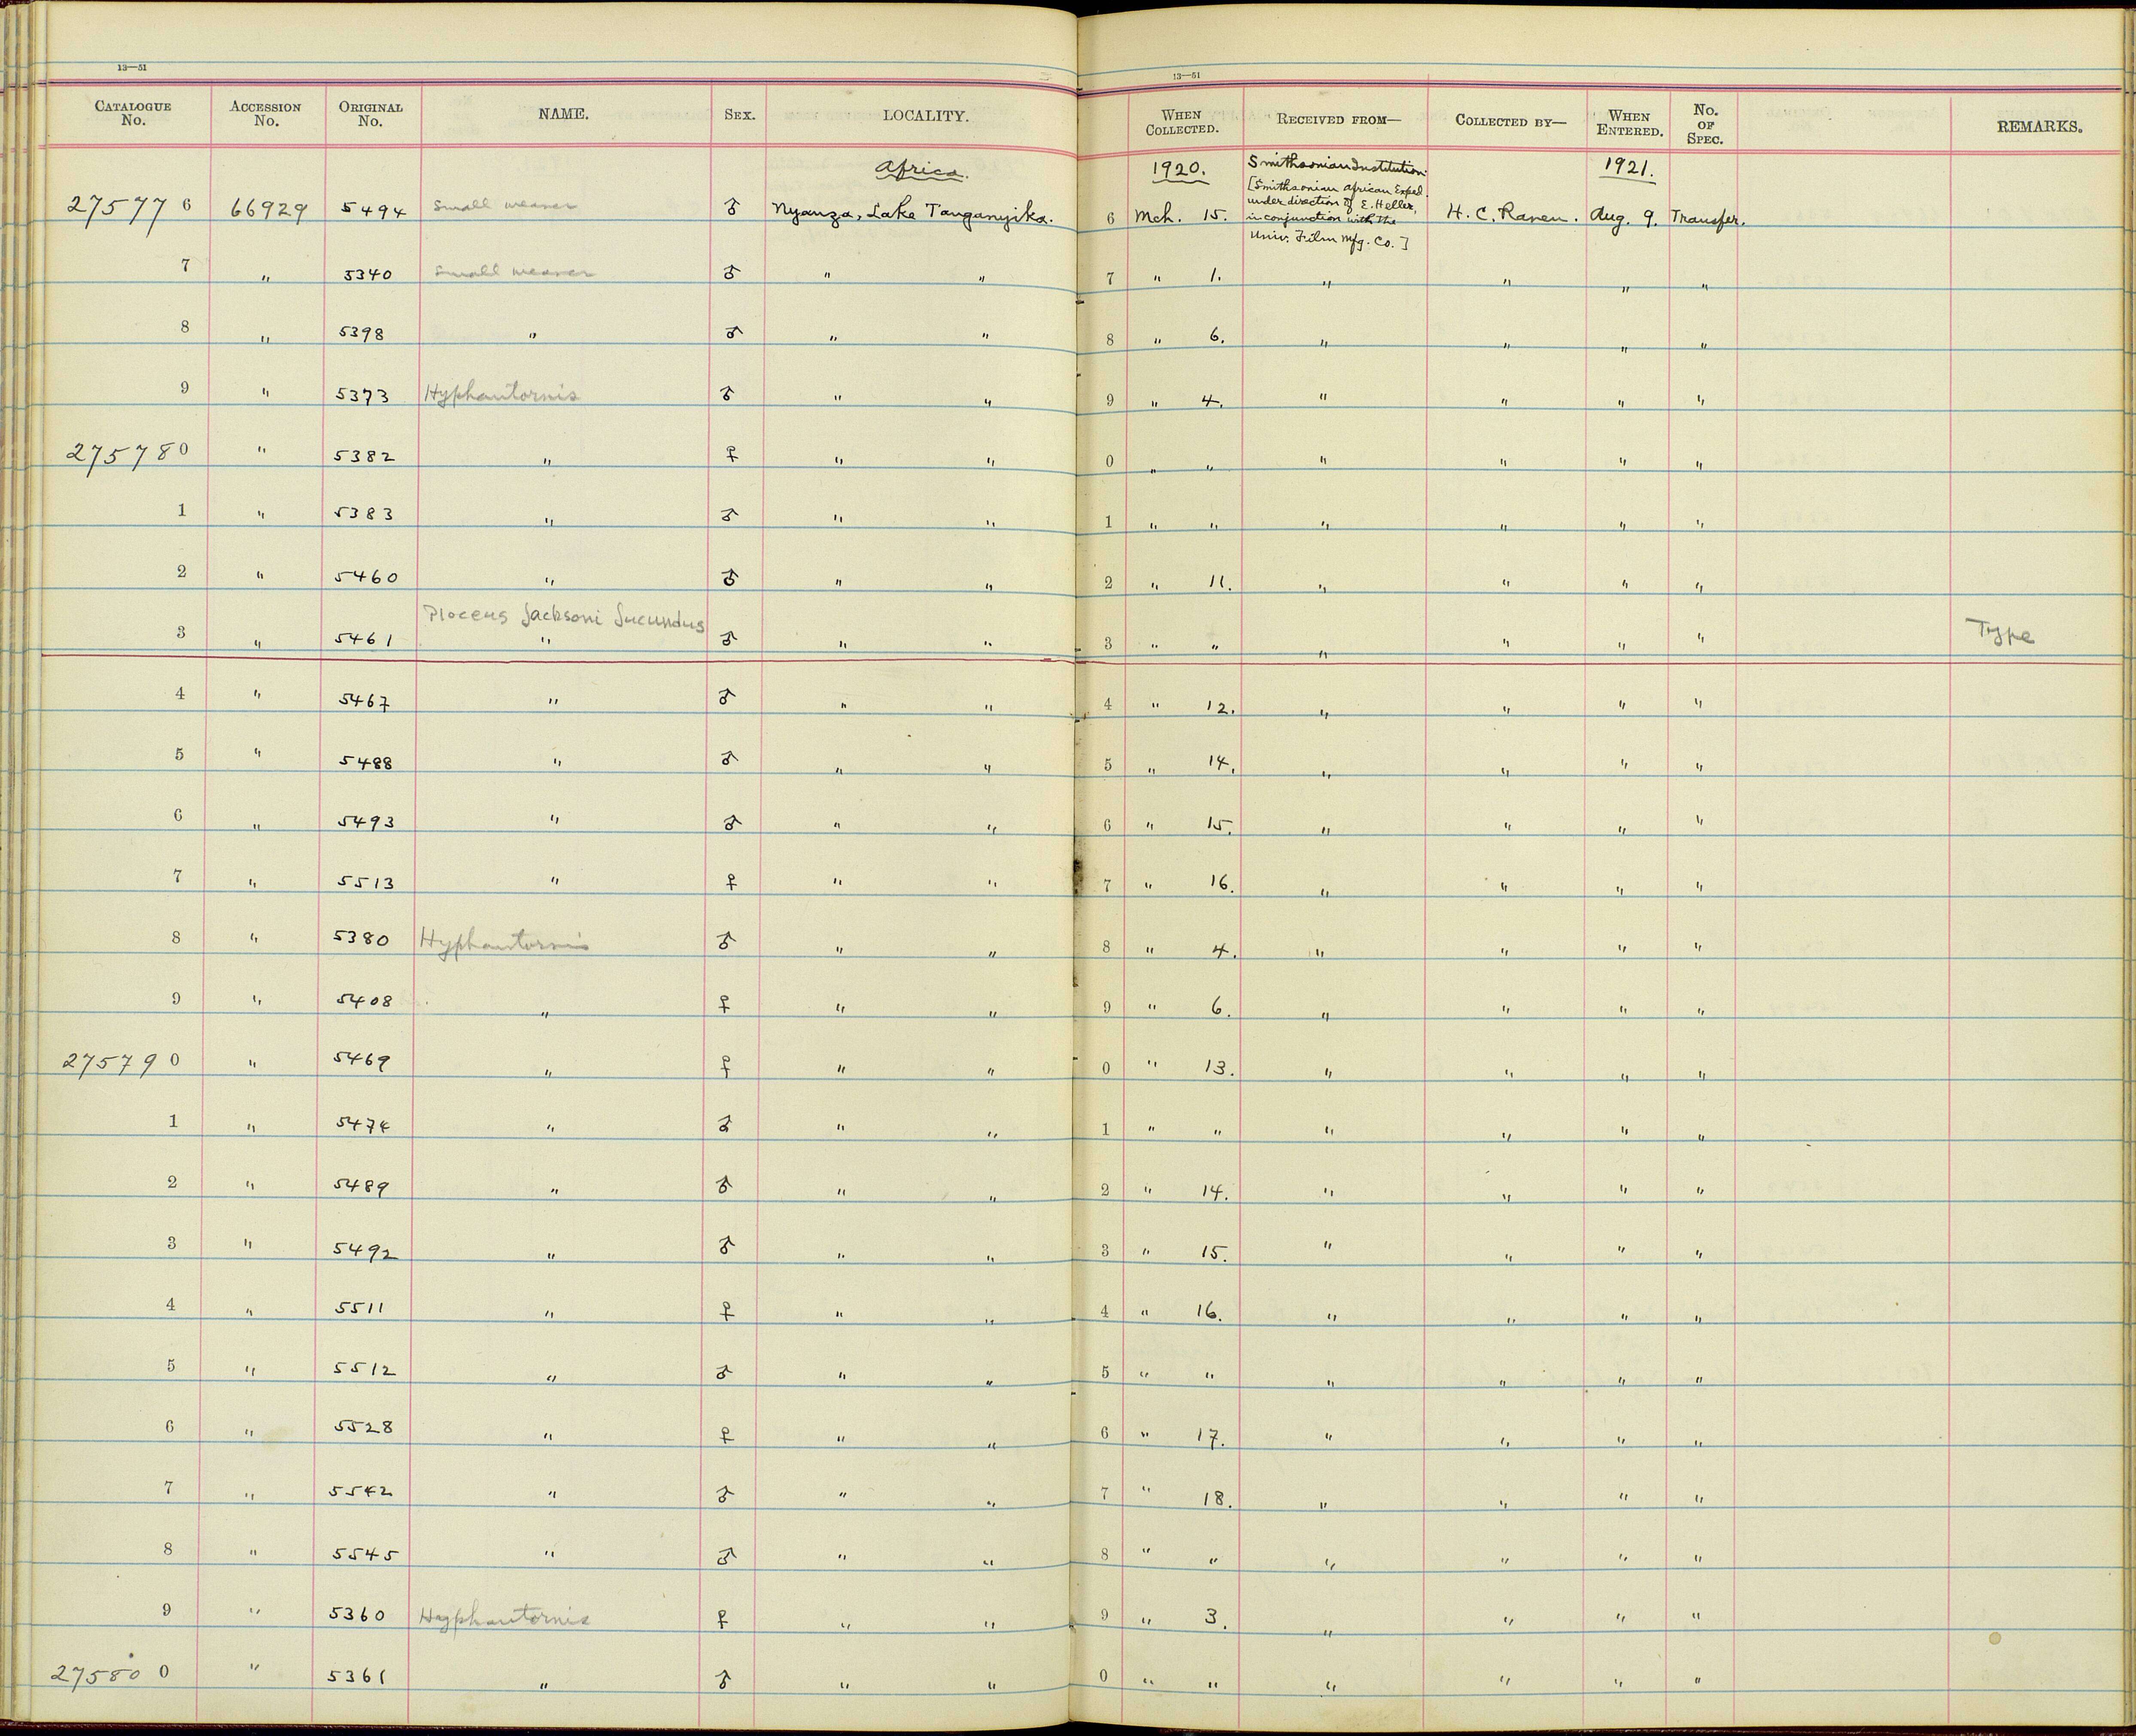 13—51
13—51
CATALOGUE No. ACCESSION No. ORIGINAL No. NAME. SEX. LOCALITY. WHEN COLLECTED. RECEIVED FROM— COLLECTED BY— WHEN ENTERED. No. OF SPEC. REMARKS.
Africa. 1920. Smithsonian Institution 1921.
[Smithsonian African Exped.
under direction of E. Heller,
in conjunction with the
Univ. Film Mfg. Co.]
27577 6 66929 5494 Small weaver ♂ Nyanza, Lake Tanganyika. 6 Mch. 15. H. C. Raven. Aug. 9. Transfer.
7 " 5340 Small weaver ♂ " " 7 " 1. " " " "
8 " 5398 " ♂ " " 8 " 6. " " " "
9 " 5373 Hyphantornis ♂ " " 9 " 4. " " " "
27578 0 " 5382 " ♀ " " 0 " " " " " "
1 " 5383 " ♂ " " 1 " " " " " "
2 " 5460 " ♂ " " 2 " 11. " " " "
Ploceus Jacksoni Jucundus
3 " 5461 " ♂ " " 3 " " " " " " Type
4 " 5467 " ♂ " " 4 " 12. " " " "
5 " 5488 " ♂ " " 5 " 14. " " " "
6 " 5493 " ♂ " " 6 " 15. " " " "
7 " 5513 " ♀ " " 7 " 16. " " " "
8 " 5380 Hyphantornis ♂ " " 8 " 4. " " " "
9 " 5408 " ♀ " " 9 " 6. " " " "
27579 0 " 5469 " ♀ " " 0 " 13. " " " "
1 " 5474 " ♂ " " 1 " " " " " "
2 " 5489 " ♂ " " 2 " 14. " " " "
3 " 5492 " ♂ " " 3 " 15. " " " "
4 " 5511 " ♀ " " 4 " 16. " " " "
5 " 5512 " ♂ " " 5 " " " " " "
6 " 5528 " ♀ " " 6 " 17. " " " "
7 " 5542 " ♂ " " 7 " 18. " " " "
8 " 5545 " ♂ " " 8 " " " " " "
9 " 5360 Hyphantornis ♀ " " 9 " 3. " " " "
27580 0 " 5361 " ♂ " " 0 " " " " " "